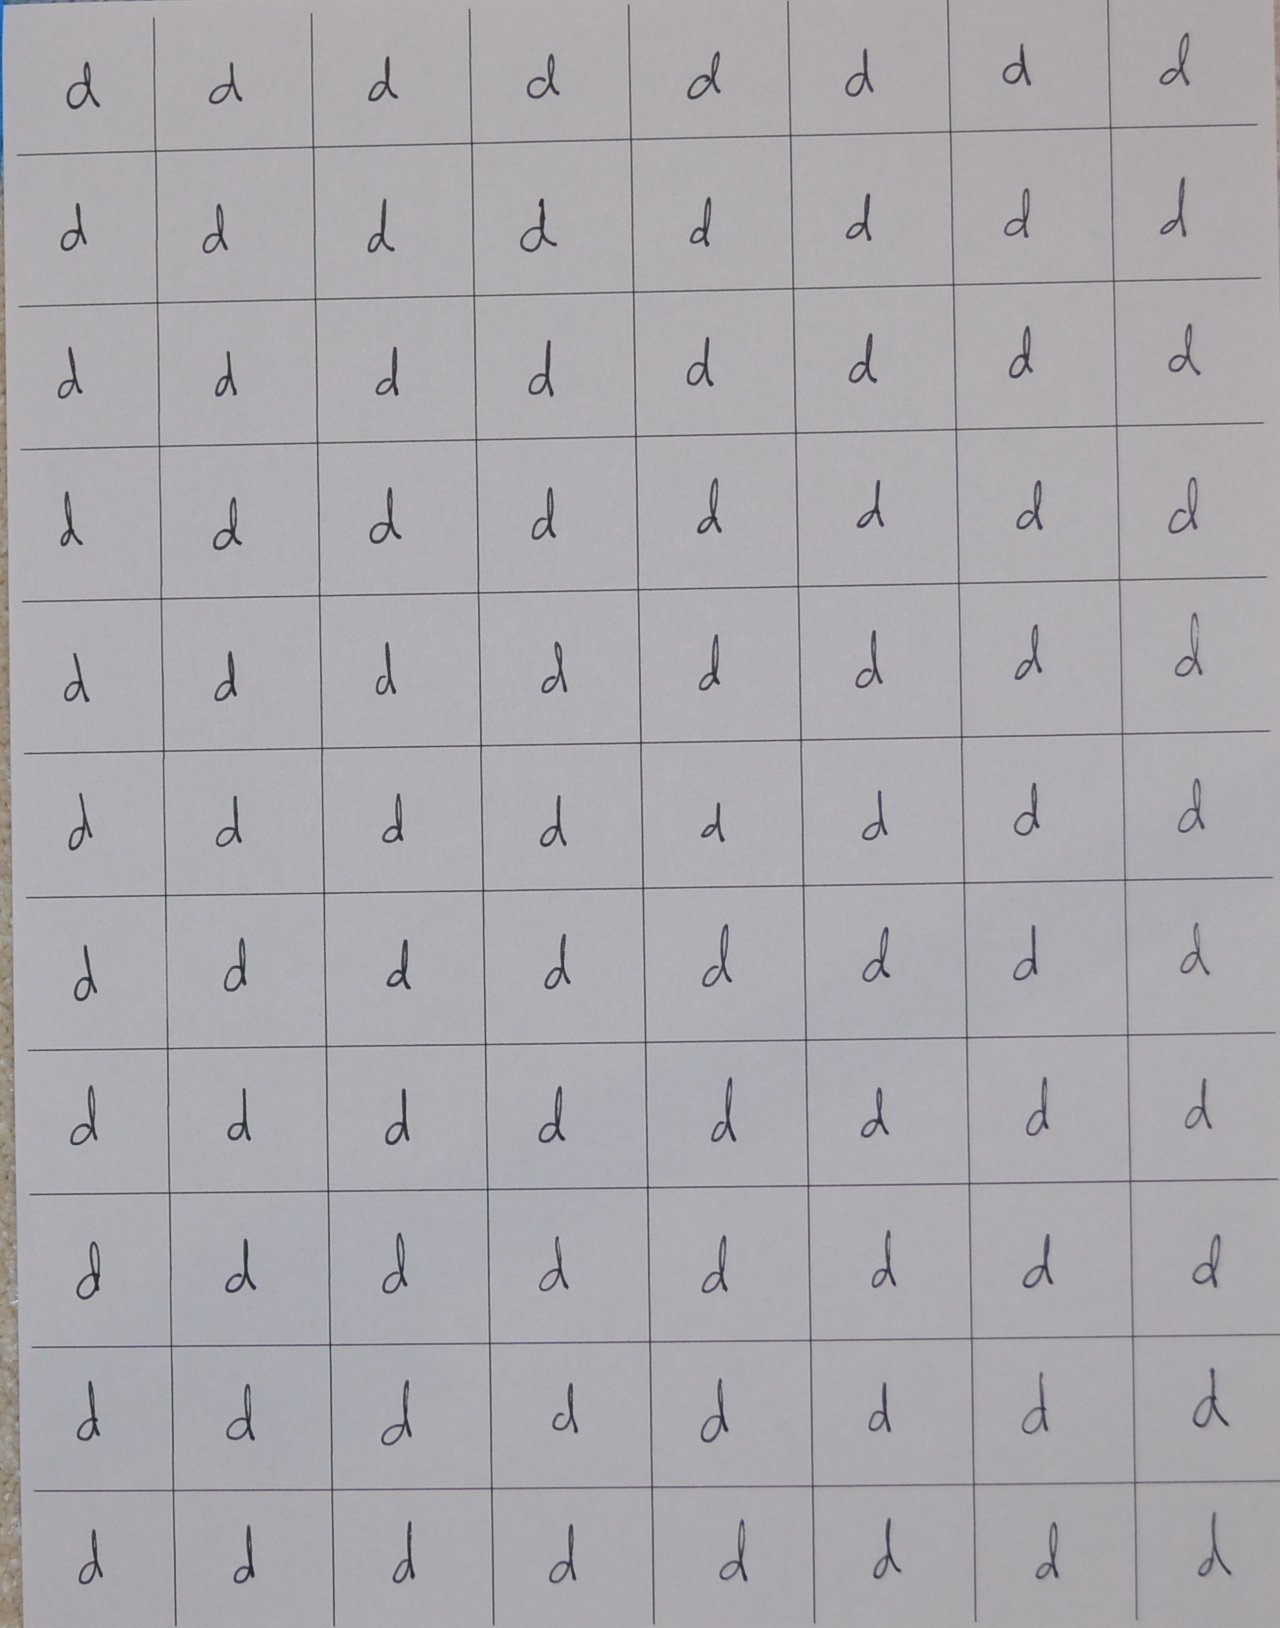 d d d d d d d d
d d d d d d d d
d d d d d d d d
d d d d d d d d
d d d d d d d d
d d d d d d d d
d d d d d d d d
d d d d d d d d
d d d d d d d d
d d d d d d d d
d d d d d d d d